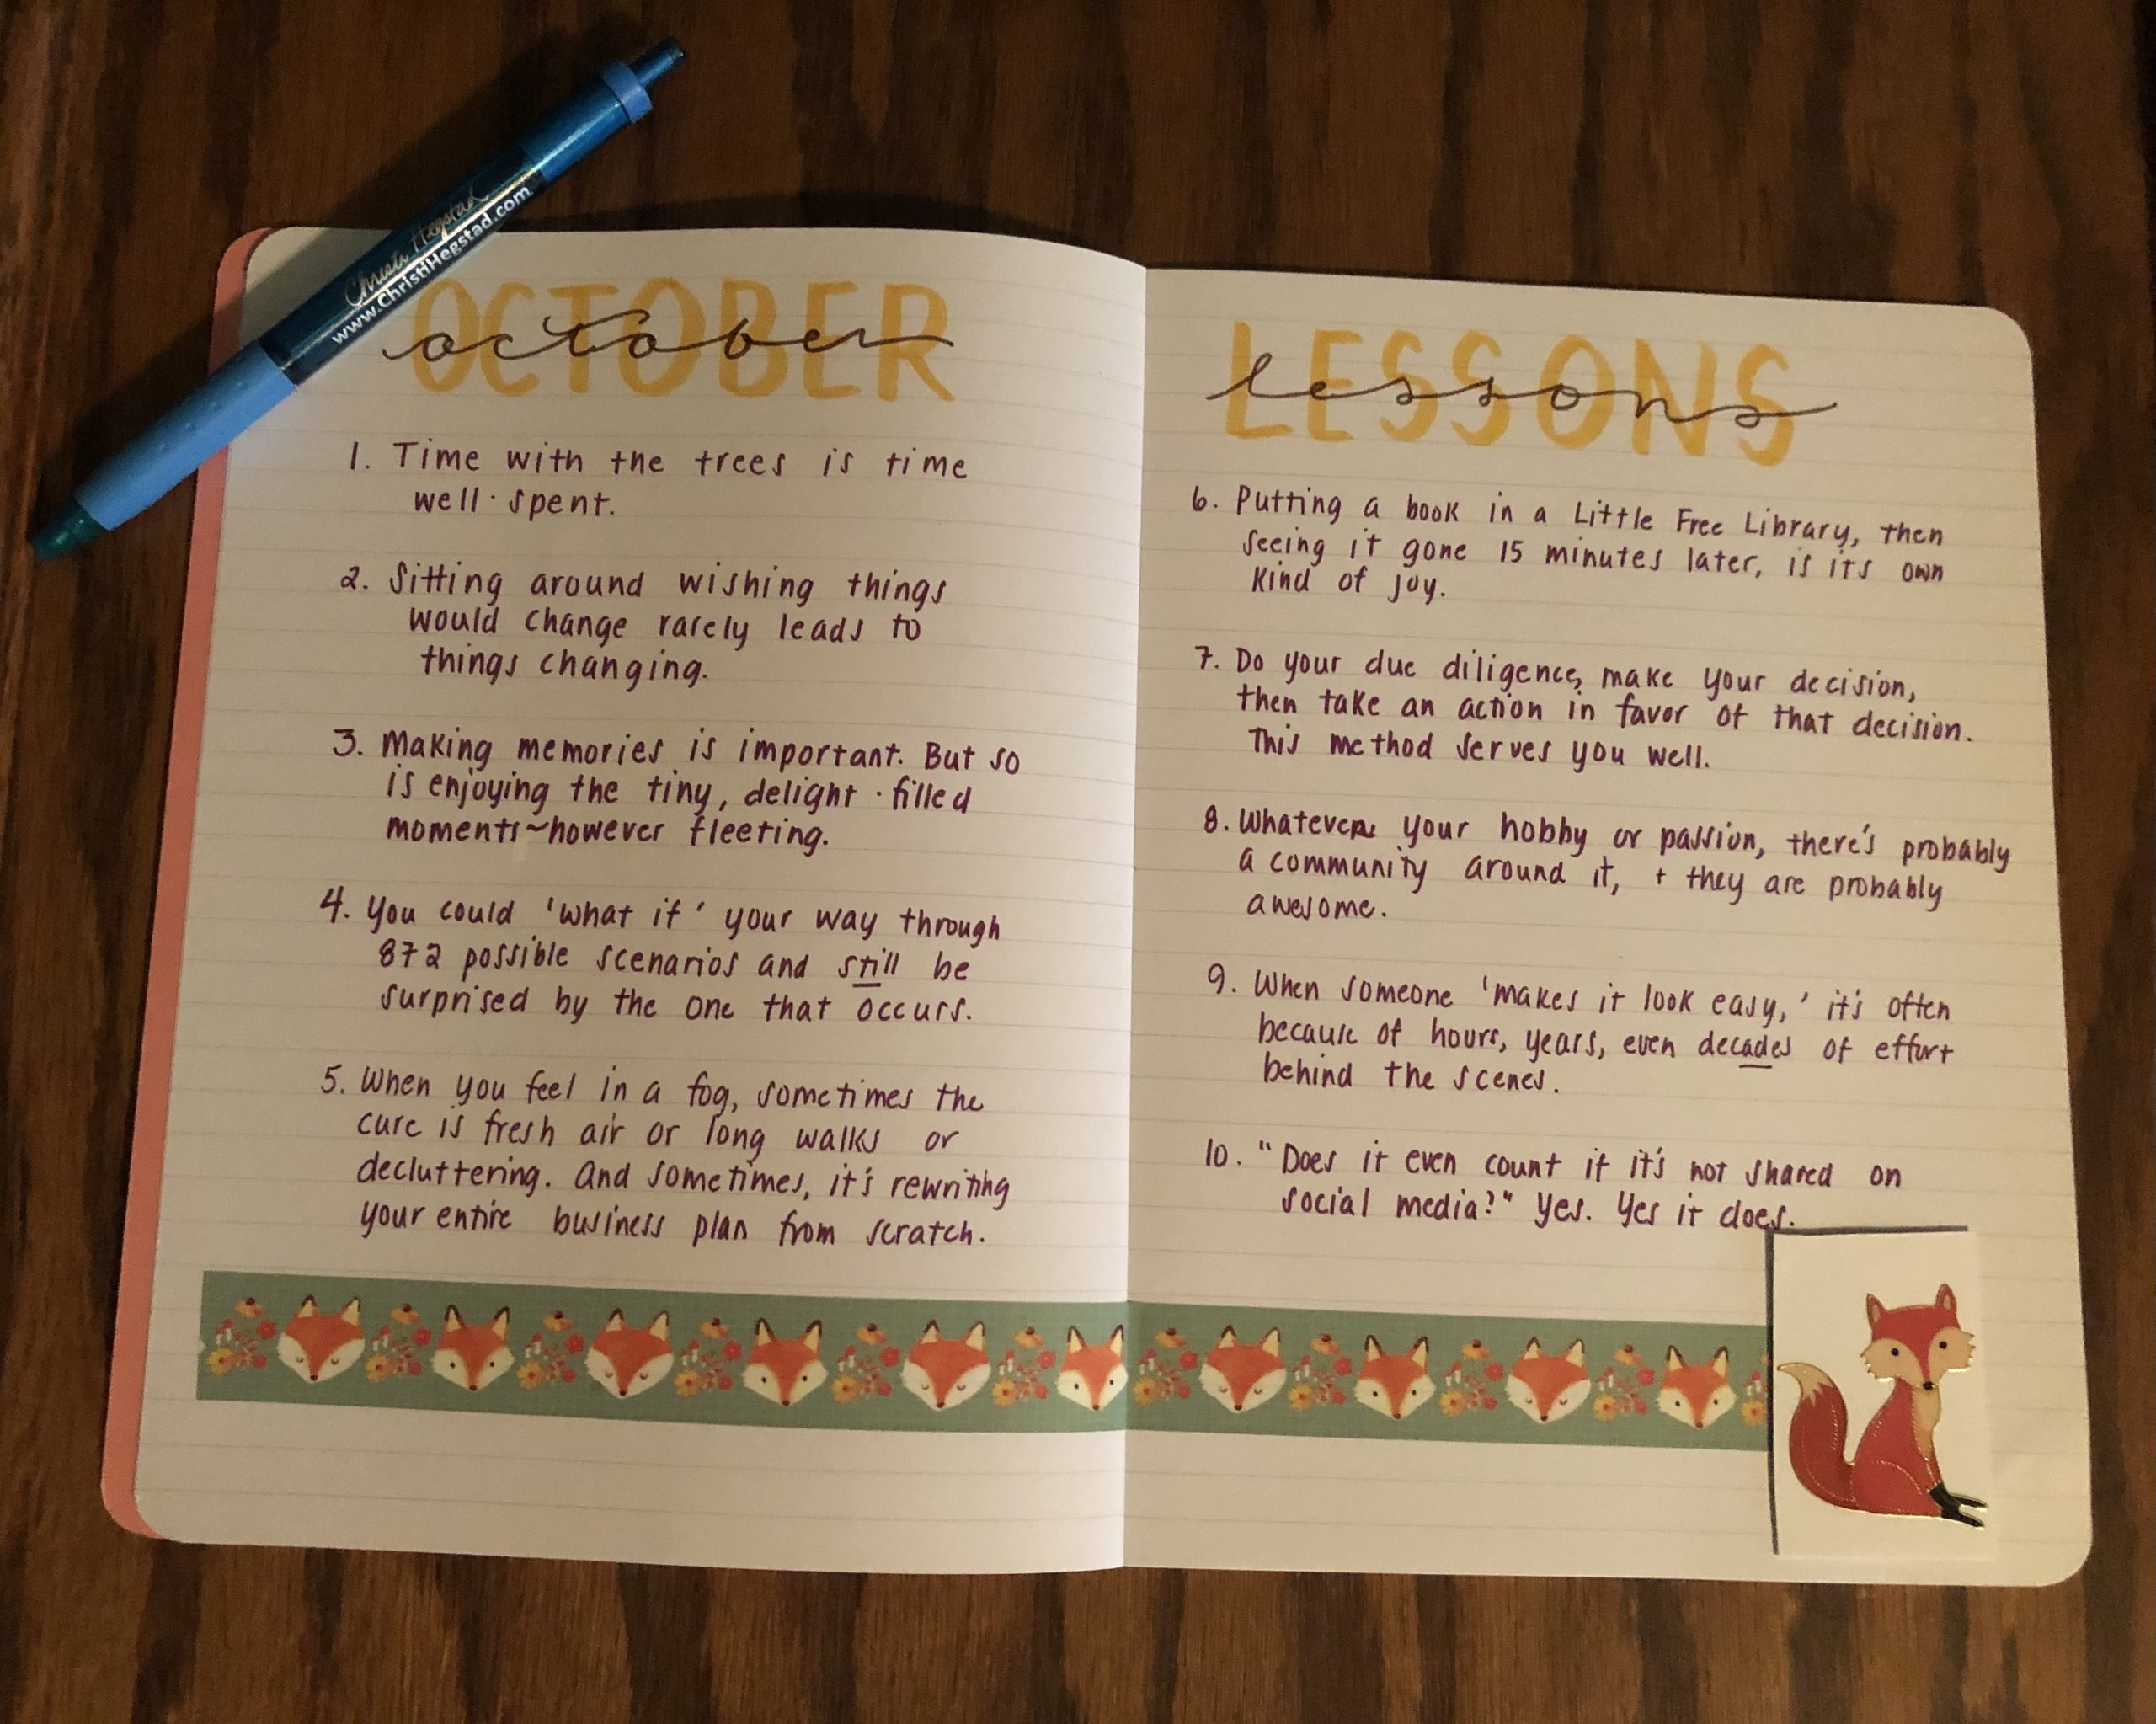 Christi Hegstad
www.ChristiHegstad.com
OCTOBER
october
1. Time with the trees is time
well·spent.
2. Sitting around wishing things
would change rarely leads to
things changing.
3. Making memories is important. But so
is enjoying the tiny, delight·filled
moments~however fleeting.
4. You could 'what if' your way through
872 possible scenarios and still be
surprised by the one that occurs.
5. When you feel in a fog, sometimes the
cure is fresh air or long walks or
decluttering. And sometimes, it's rewriting
your entire business plan from scratch.
LESSONS
lessons
6. Putting a book in a Little Free Library, then
seeing it gone 15 minutes later, is its own
kind of joy.
7. Do your due diligence, make your decision,
then take an action in favor of that decision.
This method serves you well.
8. Whatever your hobby or passion, there's probably
a community around it, + they are probably
awesome.
9. When someone 'makes it look easy,' it's often
because of hours, years, even decades of effort
behind the scenes.
10. "Does it even count if it's not shared on
social media?" Yes. Yes it does.